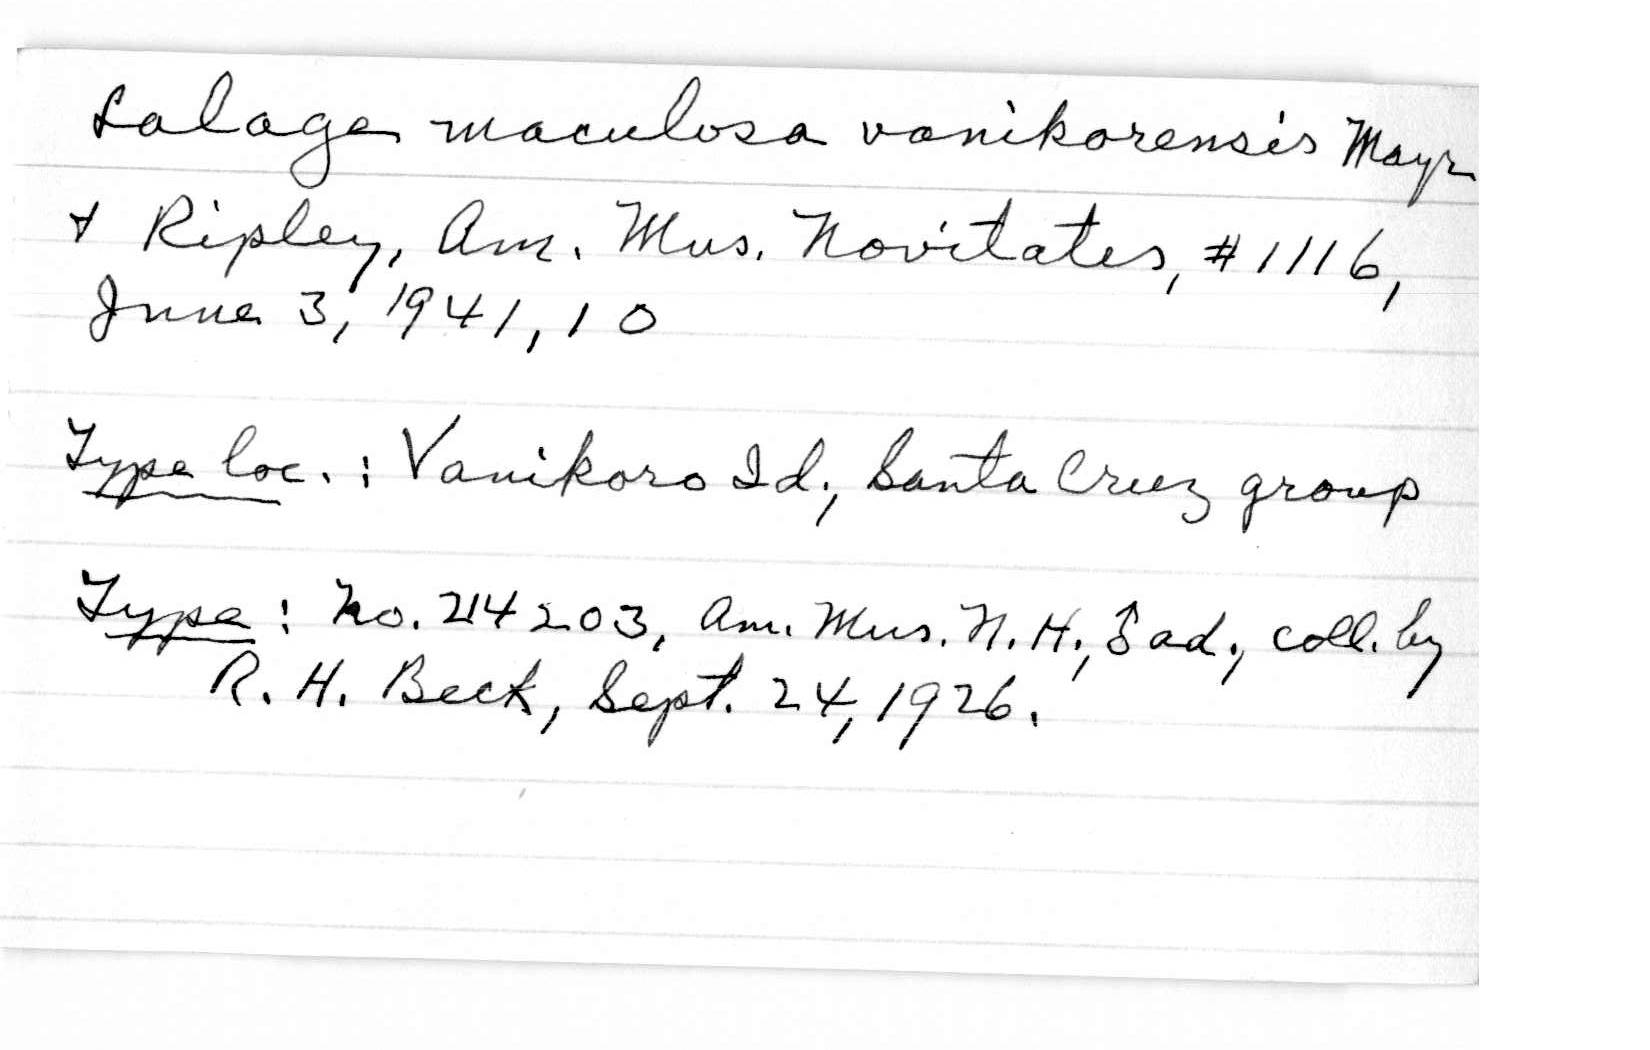 Lalage maculosa vanikorensis Mayr
& Ripley, Am. Mus. Novitates, #1116,
June 3, 1941, 10
Type loc.: Vanikoro Id., Santa Cruz group
Type: No. 214203, Am. Mus. N. H., ♂ ad., coll. by
R. H. Beck, Sept. 24, 1926.